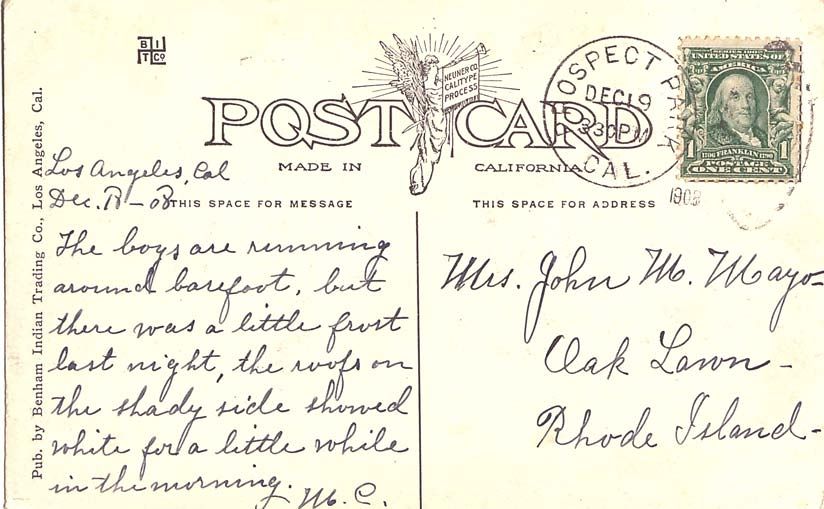 B I
T Co
NEUNER CO.
CALITYPE
PROCESS
POST CARD
MADE IN CALIFORNIA.
PROSPECT PARK
DEC 19
3 30 PM
CAL.
1908
UNITED STATES OF
AMERICA
1706 FRANKLIN 1790
1 POSTAGE 1
ONE CENT
Pub. by Benham Indian Trading Co., Los Angeles, Cal.
THIS SPACE FOR MESSAGE
THIS SPACE FOR ADDRESS
Los Angeles, Cal
Dec. 18 - 08
The boys are running
around barefoot, but
there was a little frost
last night, the roofs on
the shady side showed
white for a little while
in the morning.
M. C.
Mrs. John M. Mayo -
Oak Lawn -
Rhode Island -